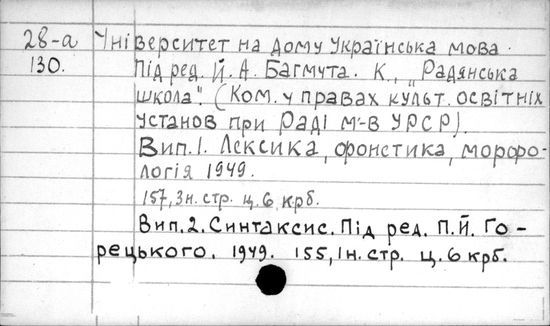 28-а Університет на дому Українська мова.
130. Під ред. Й. А. Багмута. К., „Радянська
школа". (Ком. у правах культ. освітніх
установ при Раді м-в УРСР).
Вип. 1. Лексика, фонетика, морфо-
логія 1949.
157, 3 н. стр. ц. 6 крб.
Вип. 2. Синтаксис. Під ред. П. Й. Го-
рецького. 1949. 155, 1 н. стр. ц. 6 крб.